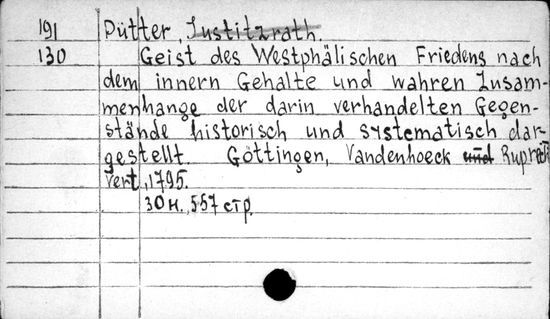 191 Pütter, Justitzrath.
130 Geist des Westphälischen Friedens nach
dem innern Gehalte und wahren Zusam-
menhange der darin verhandelten Gegen-
stände historisch und systematisch dar-
gestellt. Göttingen, Vandenhoeck und Ruprecht
Vert, 1795.
30 н., 557 стр.